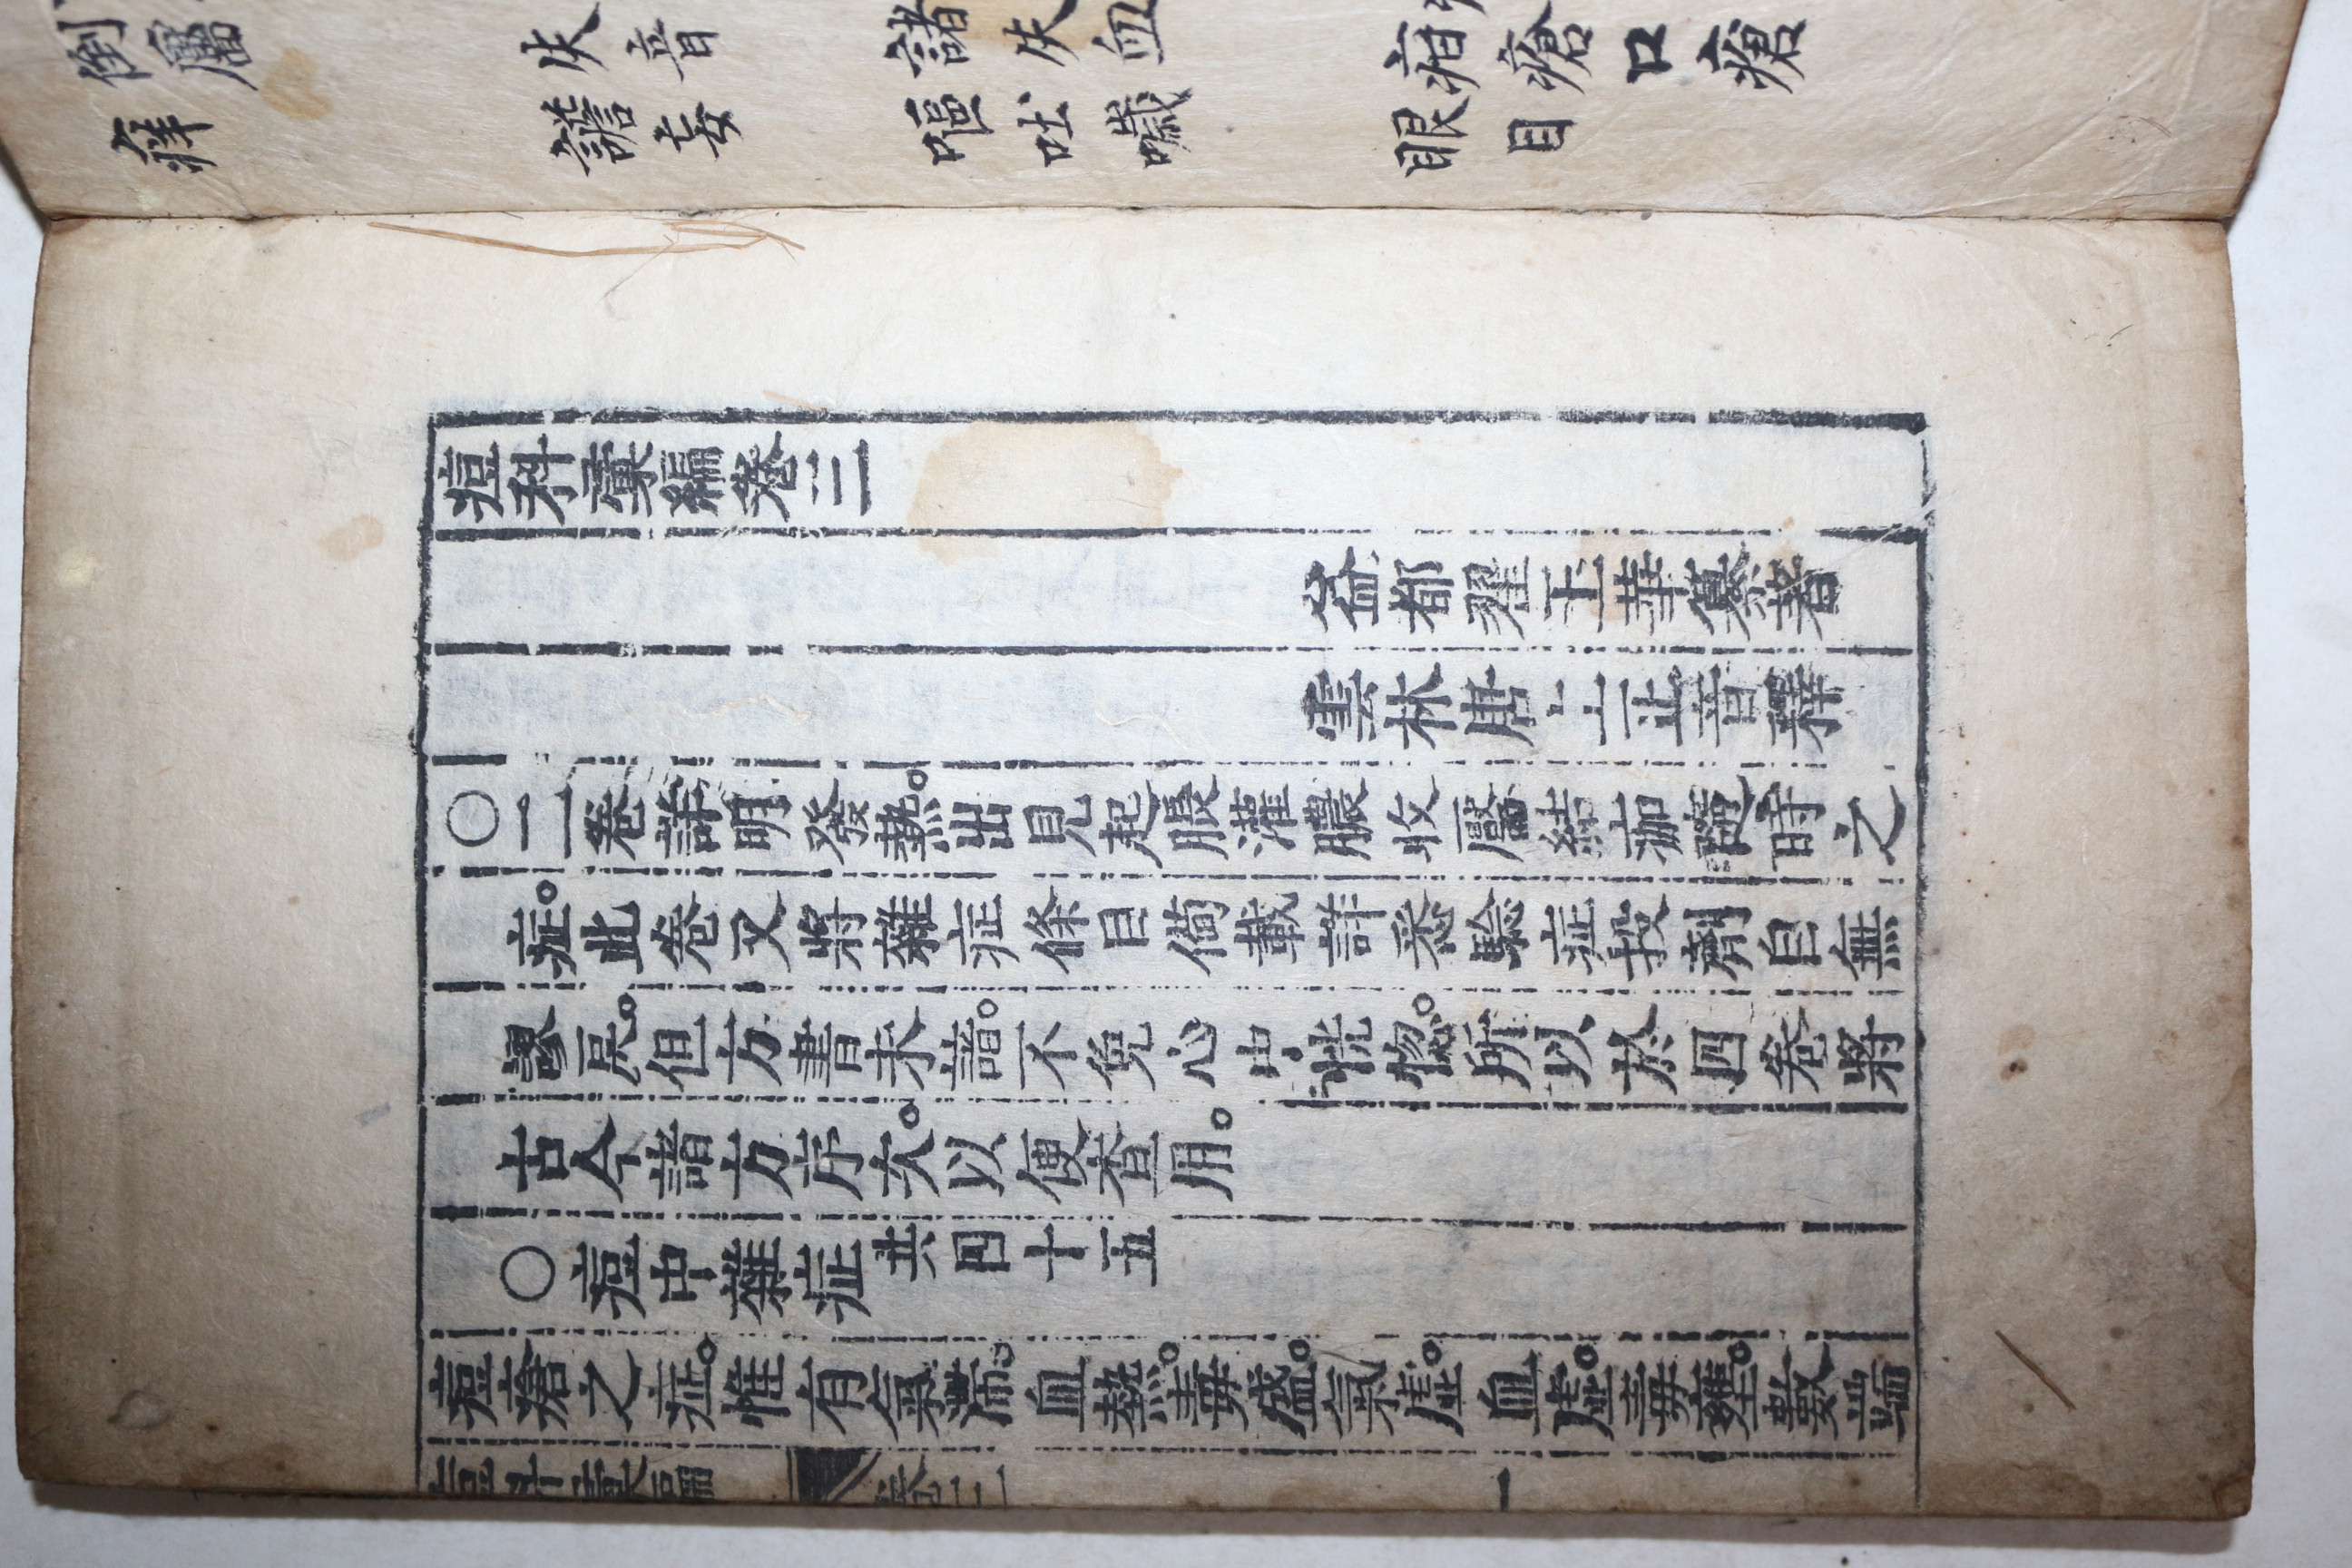 倒靨 失音 諸失血 疳瘡口瘡
癢 譫妄 嘔吐噦 眼目
痘科彙編卷三
益都翟玉華纂著
林唐止音釋
○一二卷詳明發熱。出見起脹灌膿收靨結痂隨時之
症。此卷又將雜症條目備載詳悉驗症投劑自無
謬悞。但方書未諳。不免心中恍惚。所以於四卷將
古今諸方序次。以便查用。
○痘中雜症共四十五
痘瘡之症。惟有氣滯。血熱。毒盛。氣虛。血虛。毒壅。數端
痘科彙編 卷三 一